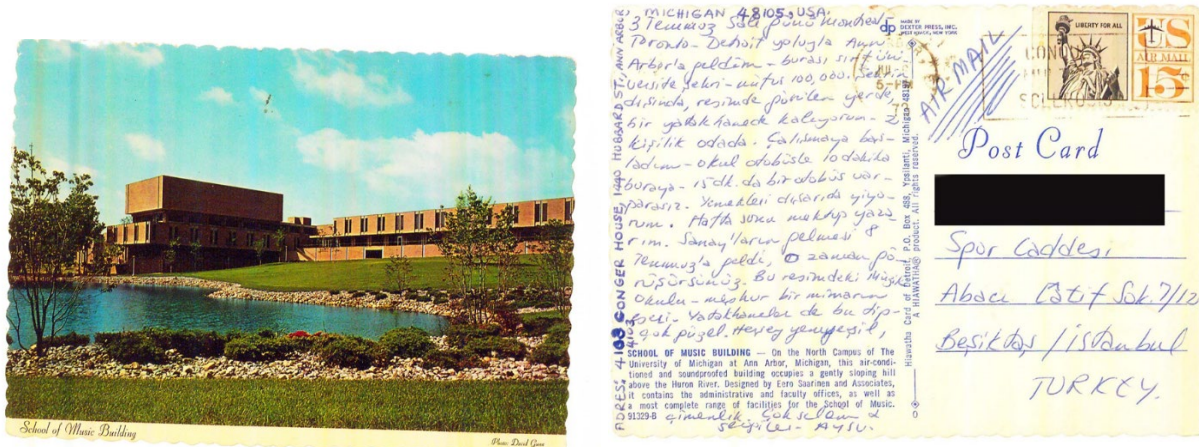 School of Music Building
Photo: David Gunn
MICHIGAN 48105, USA.
3 Temmuz Salı günü Montreal
Toronto - Detroit yoluyla Ann
Arbor'a geldim - burası sırf üni
versite şehri - nüfus 100,000. Şehir
dışında, resimde görülen yerde,
bir yatakhanede kalıyorum - 2
kişilik odada. Çalışmaya baş-
ladım - okul otobüsle 10 dakika
buraya - 15 dk. da bir otobüs var -
parasız. Yemekleri dışarıda yiyo-
rum. Hafta sonu mektup yaza
rım. Sanay'ların gelmesi 8
Temmuz'a geldi, o zaman gö-
rüşürsünüz. Bu resimdeki müzik
okulu - meşhur bir mimarın
eseri. Yatakhaneler de bu tip -
çok güzel. Herşey yemyeşil,
çimenlik Çok selam &
sevgiler - AYSU.
ADRES: 4103 CONGER HOUSE, 1440 HUBBARD ST., ANN ARBOR
4103
SCHOOL OF MUSIC BUILDING — On the North Campus of The
University of Michigan at Ann Arbor, Michigan, this air-condi-
tioned and soundproofed building occupies a gently sloping hill
above the Huron River. Designed by Eero Saarinen and Associates,
it contains the administrative and faculty offices, as well as
a most complete range of facilities for the School of Music.
91329-B
dp
MADE BY
DEXTER PRESS, INC.
WEST NYACK, NEW YORK
Hiawatha Card of Detroit, P.O. Box 458, Ypsilanti, Michigan 48197
A HIAWATHA® product. All rights reserved.
AIR-MAIL
LIBERTY FOR ALL
US
AIR MAIL
15c
Post Card
Spor Caddesi
Abacı Latif Sok. 7/12
Beşiktaş / İstanbul
TURKEY.